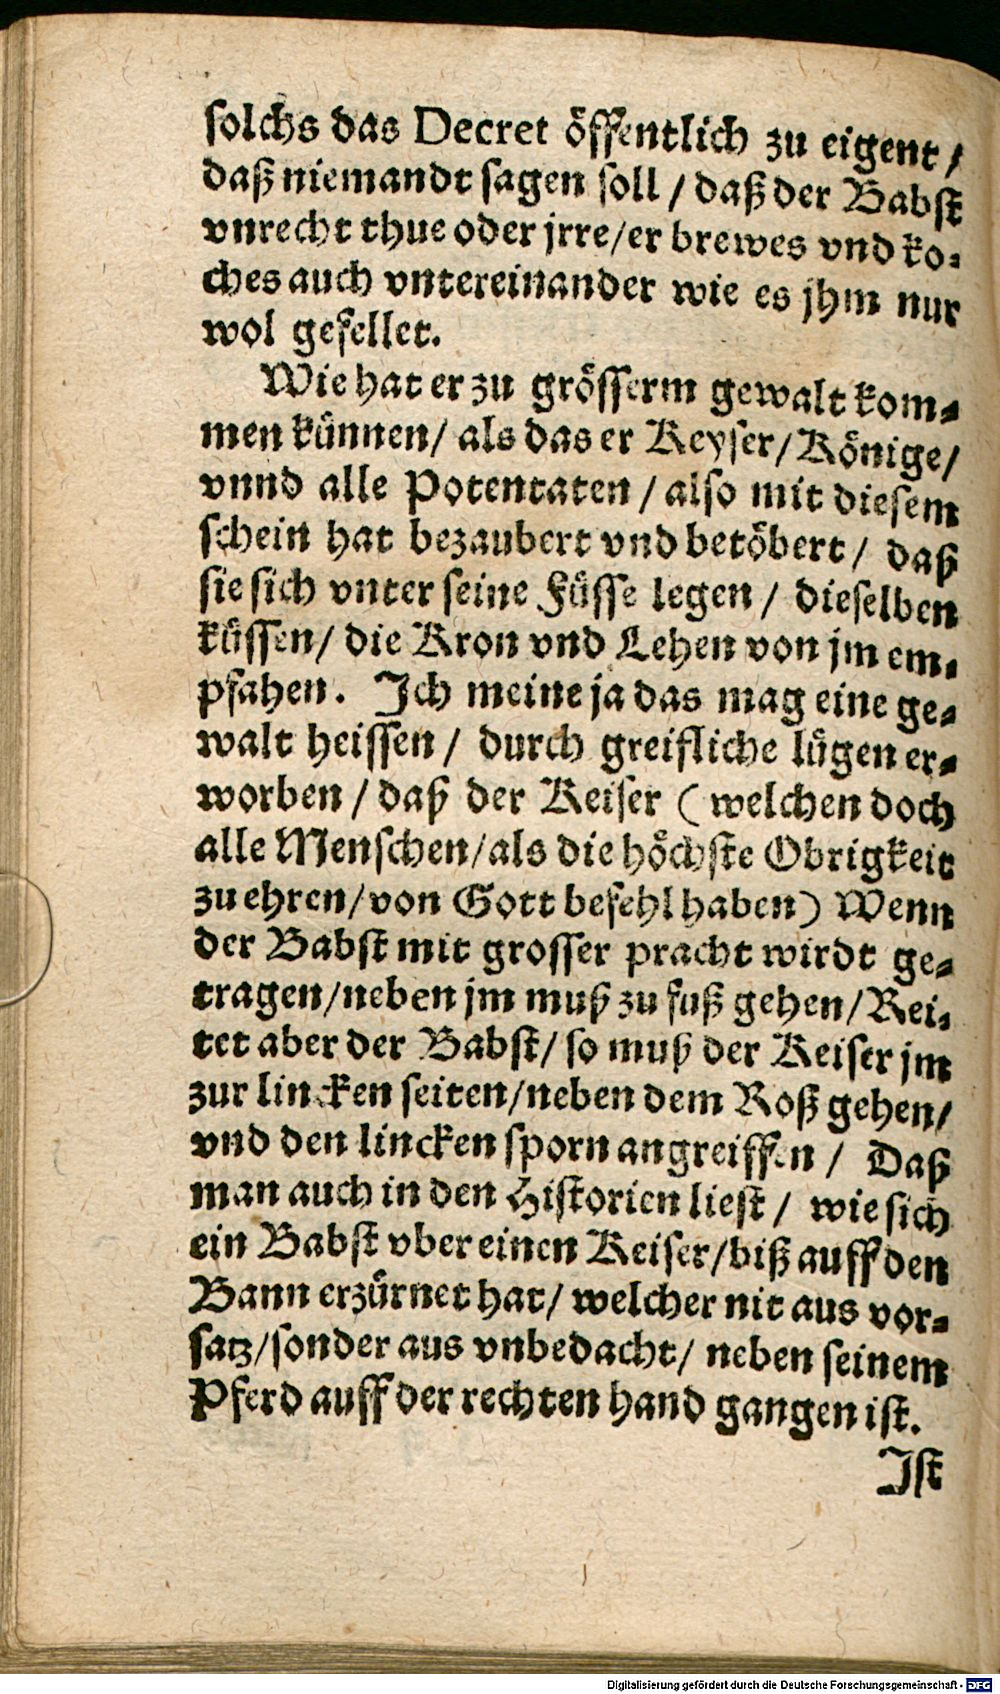 solchs das Decret öffentlich zu eigent /
daß niemandt sagen soll / daß der Babst
vnrecht thue oder jrre/er brewes vnd ko-
ches auch vntereinander wie es jhm nur
wol gefellet.
Wie hat er zu grösserm gewalt kom-
men künnen/ als das er Keyser/Könige/
vnnd alle Potentaten / also mit diesem
schein hat bezaubert vnd betöbert / daß
sie sich vnter seine Füsse legen / dieselben
küssen/ die Kron vnd Lehen von jm em-
pfahen. Ich meine ja das mag eine ge-
walt heissen / durch greifliche lügen er-
worben / daß der Keiser ( welchen doch
alle Menschen/als die höchste Obrigkeit
zu ehren/von Gott befehl haben) Wenn
der Babst mit grosser pracht wirdt ge-
tragen/neben jm muß zu fuß gehen/Rei-
tet aber der Babst/ so muß der Keiser jm
zur lincken seiten/neben dem Roß gehen/
vnd den lincken sporn angreiffen / Daß
man auch in den Historien liest / wie sich
ein Babst vber einen Keiser/biß auff den
Bann erzürnet hat/ welcher nit aus vor-
satz/sonder aus vnbedacht/ neben seinem
Pferd auff der rechten hand gangen ist.
Ist
Digitalisierung gefördert durch die Deutsche Forschungsgemeinschaft - DFG